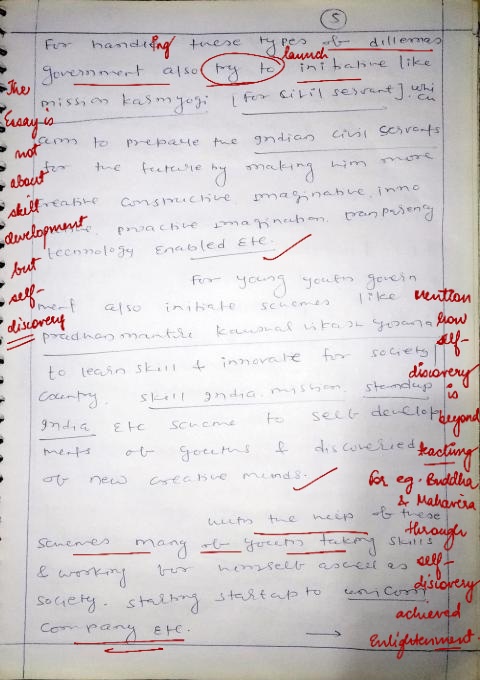 5
For handling these types of dillemas
government also try to launch initiative like
mission karmyogi [for civil servant] whi
ch
aim to prepare the Indian civil servants
for the future by making him more
creative constructive, imaginative, inno
proactive imagination, transparency
technology enabled etc.
For young youth govern
ment also initiate schemes like
pradhanmantri kaushal vikash yojana
to learn skill & innovate for society
country. skill India mission, standup
India etc scheme to self develop
ments of youths & discoveried
of new creative minds.
with the help of these
schemes many of youth taking skills
& working for himself aswell as
society. starting startup to unicorn
company etc.
The
Essay is
not
about
skill
development
but
self-
discovery
mention
how
self-
discovery
is
beyond
teaching
for eg. Buddha
& Mahavira
through
self-
discovery
achieved
Enlightenment.